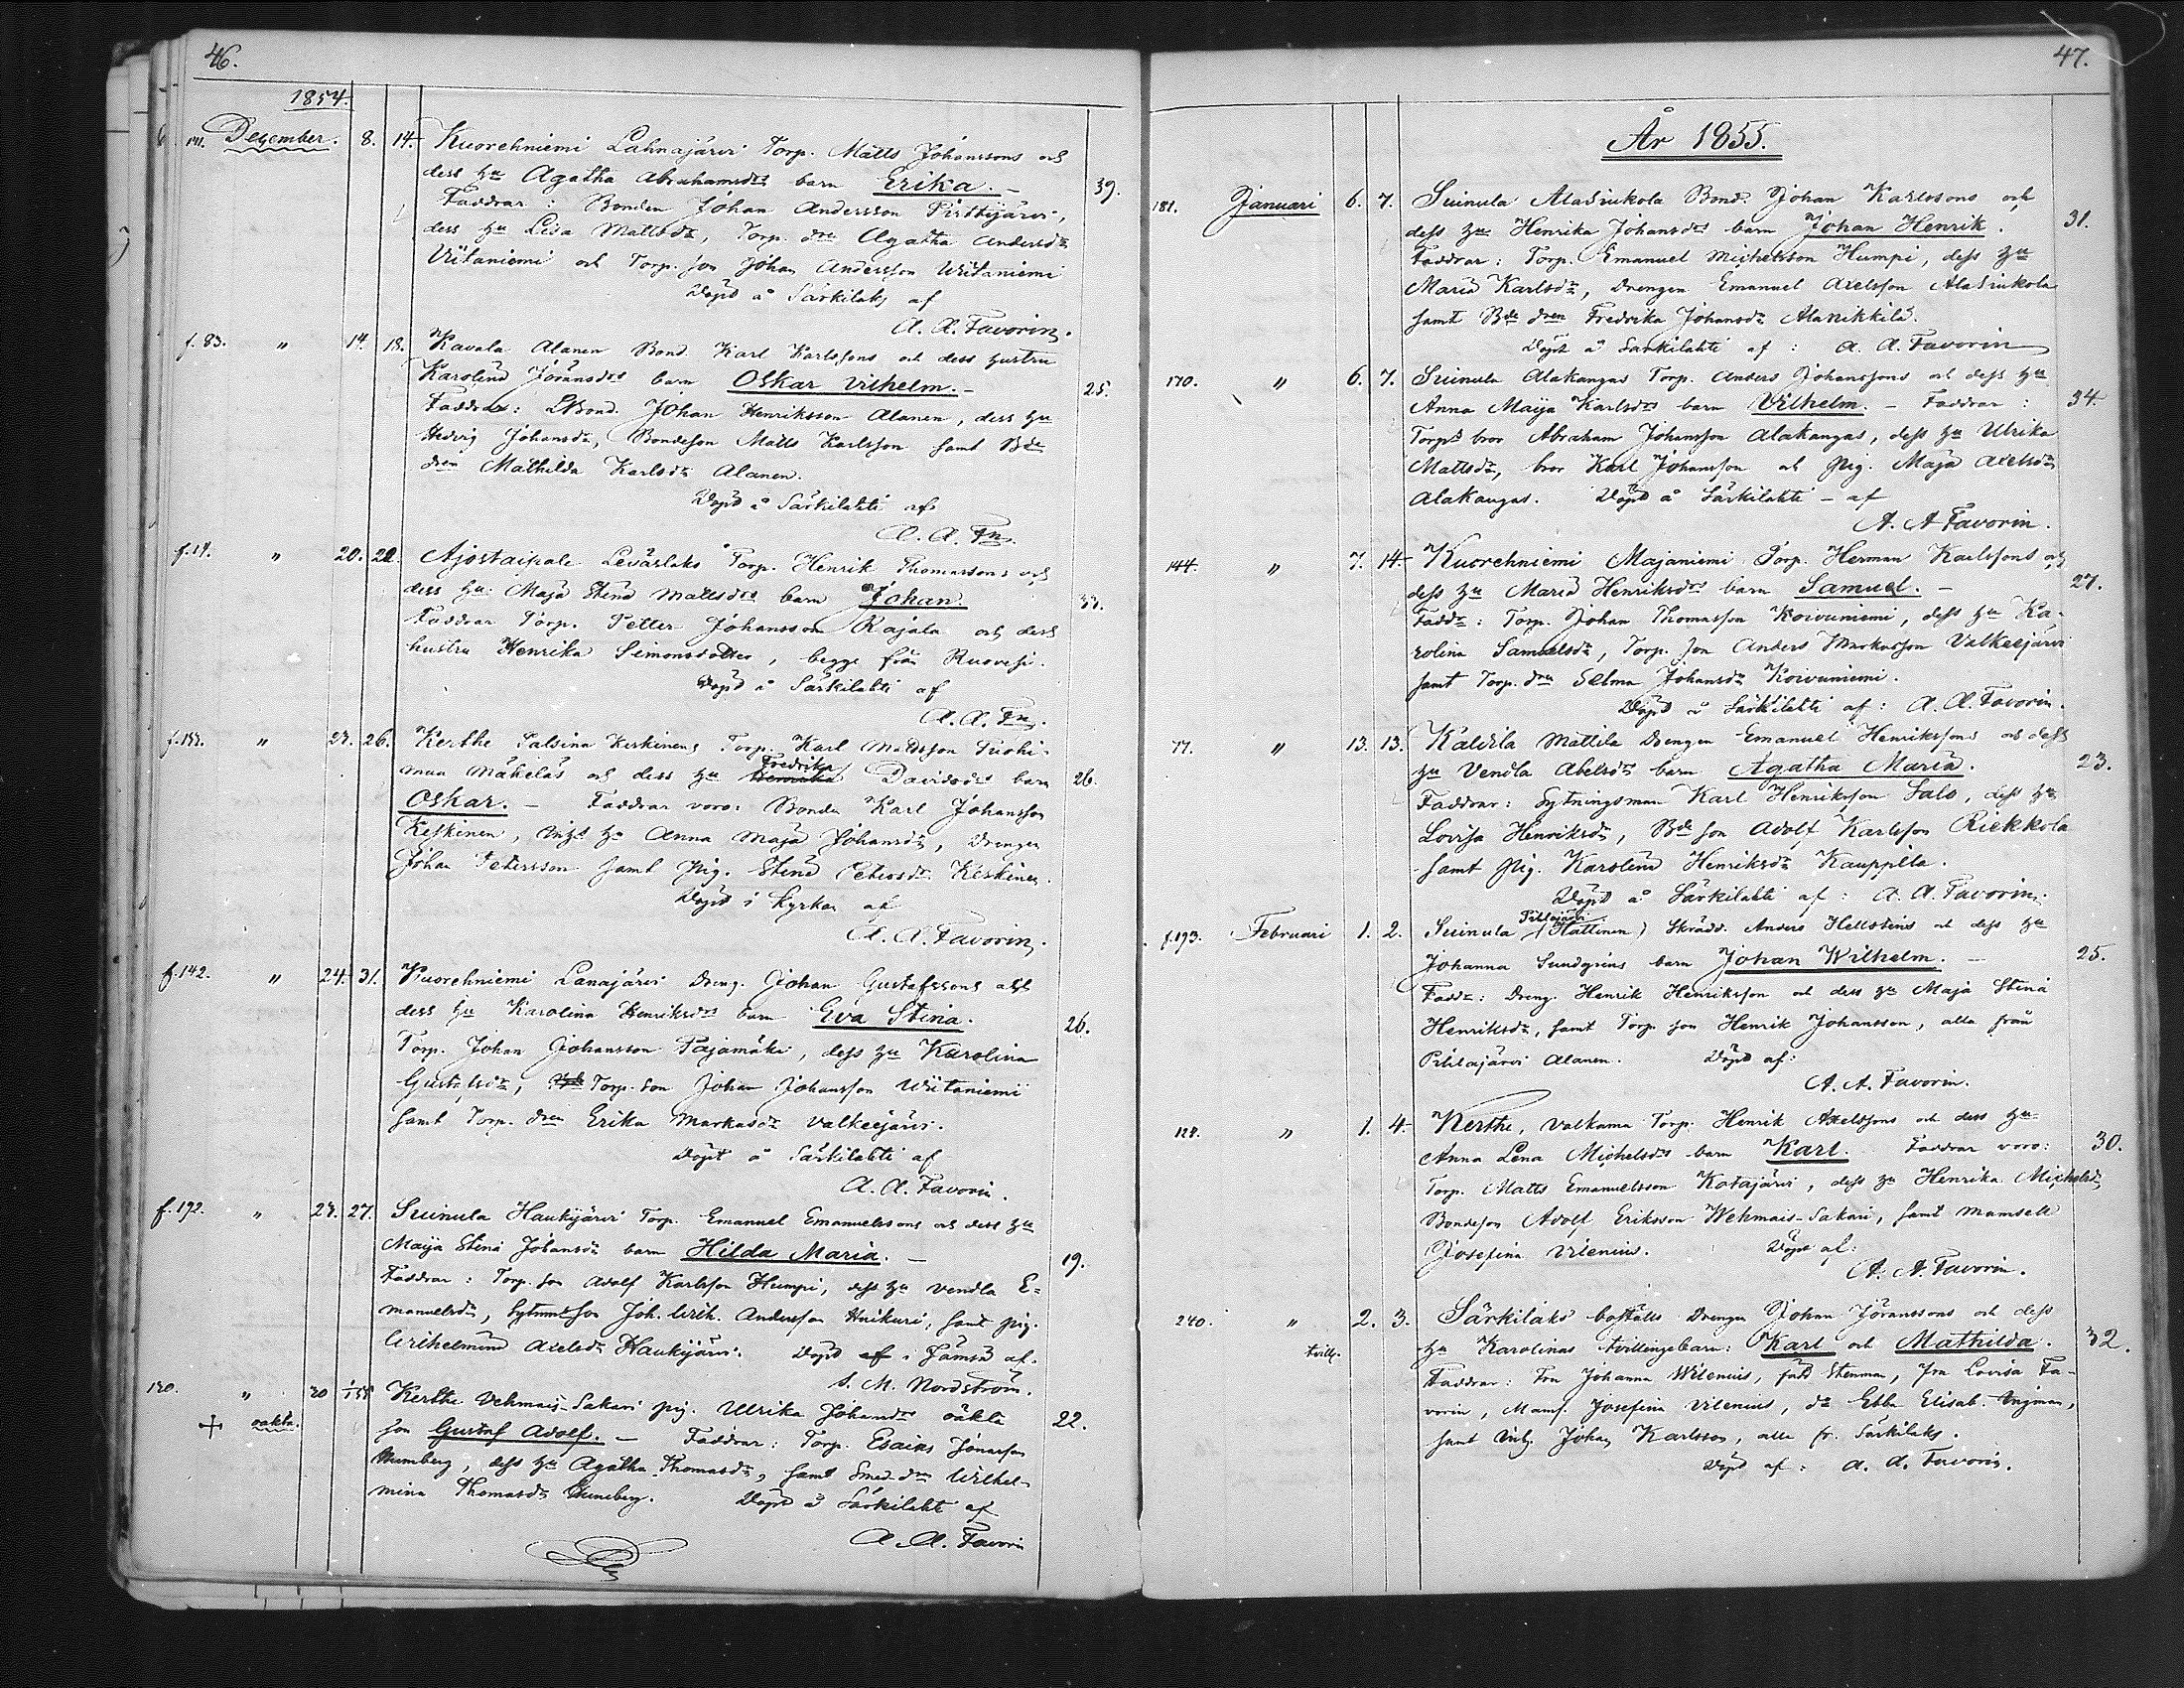 46.
1854.
141. Dezember. 8. 14. Kuorehniemi Lahnajärvi Torp. Matts Johanssons och
dess hu Agatha Abrahamsdrs barn Erika. – 39.
Faddrar: Bonden Johan Andersson Pirttijärvi,
dess hu Lisa Mattsdr, Torp. dra Agatha Andersdr
Viitaniemi och Torp. son Johan Andersson Viitaniemi
Döpt å Särkilaks af
A. A. Favorin.
f. 83. " 14. 18. Kavala Alanen Bond. Karl Karlssons och dess hustru
Karolina Jöransdrs barn Oskar Vilhelm. – 25.
Faddrar: Bond. Johan Henriksson Alanen, dess hu
Hedvig Johansdr, Bondeson Matts Karlsson samt Bde
dren Mathilda Karlsdr Alanen.
Döpt å Särkilahti af
A. A. Fn.
f. 14. " 20. 22. Ajostaipale Leväslaks Torp. Henrik Thomassons och
dess hu Maja Stina Mattsdrs barn Johan. 33.
Faddrar Torp. Petter Johansson Rajala och dess
hustru Henrika Simonsdotter, begge från Ruovesi.
Döpt å Särkilahti af
A. A. Fn.
" 23. 26. Kerthe Salsina Keskinens Torp. Karl Mattsson
Mäkeläs och dess hu Henrika Fredrika Davidsdrs barn 26.
Oskar. – Faddrar voro: Bonden Karl Johansson
Keskinen, hu Anna Maja Johansdr, Drengen
Johan Petersson samt pig. Stina Petersdr Keskinen.
Döpt i kyrkan af
A. A. Favorin.
f. 142. " 24. 31. Kuorehniemi Lanajärvi Dreng. Johan Gustafssons och
dess hu Karolina Henriksdrs barn Eva Stina. 26.
Torp. Johan Johansson Pajamäki, dess hu Karolina
Gustafsdr, Torp. Son Johan Johansson Wiitaniemi
samt Torp. dren Erika Markusdr Valkeejärvi.
Döpt å Särkilahti af
A. A. Favorin.
f. 192. " 23. 27. Suinula Haukijärvi Torp. Emanuel Emanuelssons och dess hu
Maija Stina Johansdr barn Hilda Maria. – 19.
Faddrar: Torp. son Adolf Karlsson Humpi, dess hu Vendla E-
manuelsdr, Joh. Wilh. Andersson Huikuri, samt pig.
Wilhelmina Axelsdr Haukijärvi. Döpt af i Jämsä af.
S. M. Nordström.
130. " 30 1/55 Kerthe Vehmais-Sakari pig. Ulrika Johansdrs oäkta 22.
+ oäkta. son Gustaf Adolf. – Faddrar: Torp. Esaias Jonasson
dess hu Agatha Thomasdr, samt Smed. drn Wilhel-
mina Thomasdr Döpt å Särkilahti af
A. A. Favorin
47.
År 1855.
181. Januari 6. 7. Suinula Alasiukola Bond. Johan Karlssons och
dess hu Henrika Johansdrs barn Johan Henrik. 31.
Faddrar: Torp. Emanuel Michelsson Humpi, dess hu
Maria Karlsdr, Drengen Emanuel Axelsson Alasiukola
samt Bde dren Fredrika Johansdr Alanikkilä.
Döpt å Särkilahti af: A. A. Favorin
170. " 6. 7. Suinula Alakangas Torp. Anders Johanssons och dess hu
Anna Maija Karlsdrs barn Vilhelm. – Faddrar: 34.
Torps bror Abraham Johansson Alakangas, dess hu Ulrika
Mattsdr, bror Karl Johansson och pig. Maja Axelsdr
Alakangas. Döpt å Särkilahti – af
A. A Favorin.
144. " 7. 14. Kuorehniemi Majaniemi Torp. Herman Karlssons och
dess hu Maria Henriksdrs barn Samuel. – 27.
Faddr: Torp. Johan Thomasson Koivuniemi, dess hu Ka-
rolina Samuelsdr, Torp. son Anders Markusson Valkeejärvi
samt Torp. dra Selma Johansdr Koivuniemi.
Döpt å Särkilahti af: A. A. Favorin.
77. " 13. 13. Kaldila Mattila Drengen Emanuel Henrikssons och dess
hu Vendla Abelsdrs barn Agatha Maria. 23.
Faddrar: Sytningsman Karl Henriksson Salo, dess hu
Lovisa Henriksdr, Bde son Adolf Karlsson Riekkola
samt pig. Karolina Henriksdr Kauppila.
Döpt å Särkilahti af: A. A. Favorin.
f. 193. Februari 1. 2. Suinula Pitkäjärvi (Hattinen) Skrädd. Anders Hellsteins och dess hu
Johanna Sundgrens barn Johan Wilhelm. – 25.
Faddr: Dreng. Henrik Henriksson och dess hu Maja Stina
Henriksdr, samt Torp. son Henrik Johansson, alla från
Pitkäjärvi Alanen. Döpt af:
A. A. Favorin.
124. " 1. 4. Kerthe, Valkama Torp. Henrik Axelssons och dess hu
Anna Lena Michelsdrs barn Karl. Faddrar voro: 30.
Torp. Matts Emanuelsson Kotajärvi, dess hu Henrika Michelsdr,
Bondeson Adolf Eriksson Wehmais-Sakari, samt Mamsell
Josefina Vilenius. Döpt af:
A. A. Favorin.
240. " 2. 3. Särkilaks boställs Drengen Johan Jöranssons och dess
tvill. hu Karolinas tvillingebarn: Karl och Mathilda. 32.
Faddrar: Fru Johanna Wilenius, född Stenman, Fru Lovisa Fa-
vorin, Mams. Josefina Vilenius, do Ebba Elisab. Ingman,
samt Johan Karlsson, alla fr. Särkilaks.
Döpt af: A. A. Favorin.